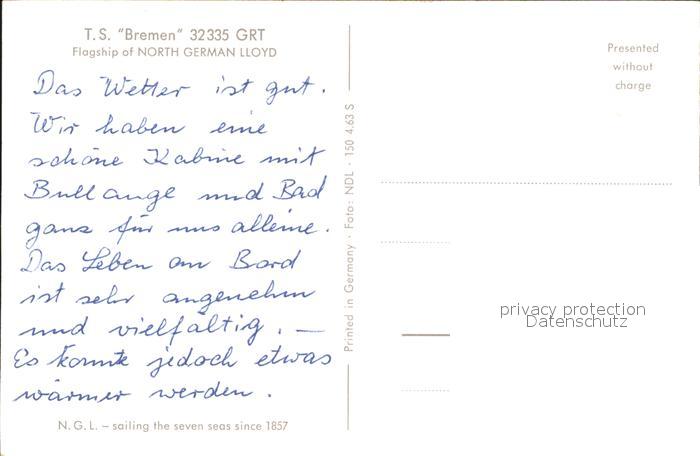 T.S. "Bremen" 32335 GRT
Flagship of NORTH GERMAN LLOYD
Das Wetter ist gut.
Wir haben eine
schöne Kabine mit
Bullauge und Bad
ganz für uns alleine.
Das Leben an Bord
ist sehr angenehm
und vielfältig. —
Es könnte jedoch etwas
wärmer werden.
N.G.L. – sailing the seven seas since 1857
Printed in Germany · Foto: NDL · 150 4.63 S
Presented
without
charge
privacy protection
Datenschutz